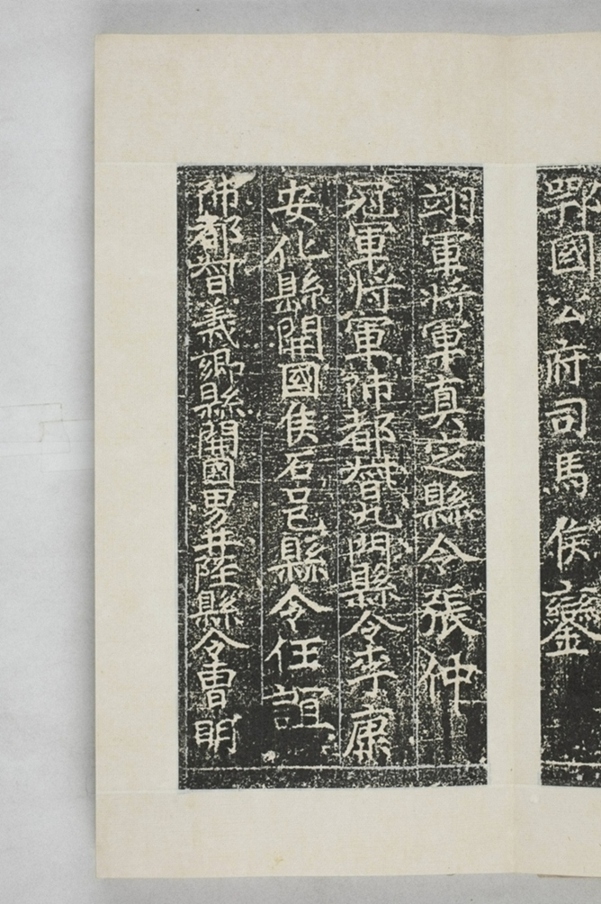 鄂國公府司馬侯鑾
翊軍將軍真定縣令張仲
冠軍將軍帥都督九門縣令李康
安化縣開國侯石邑縣令任誼
帥都督義鄉縣開國男井陘縣令曹明